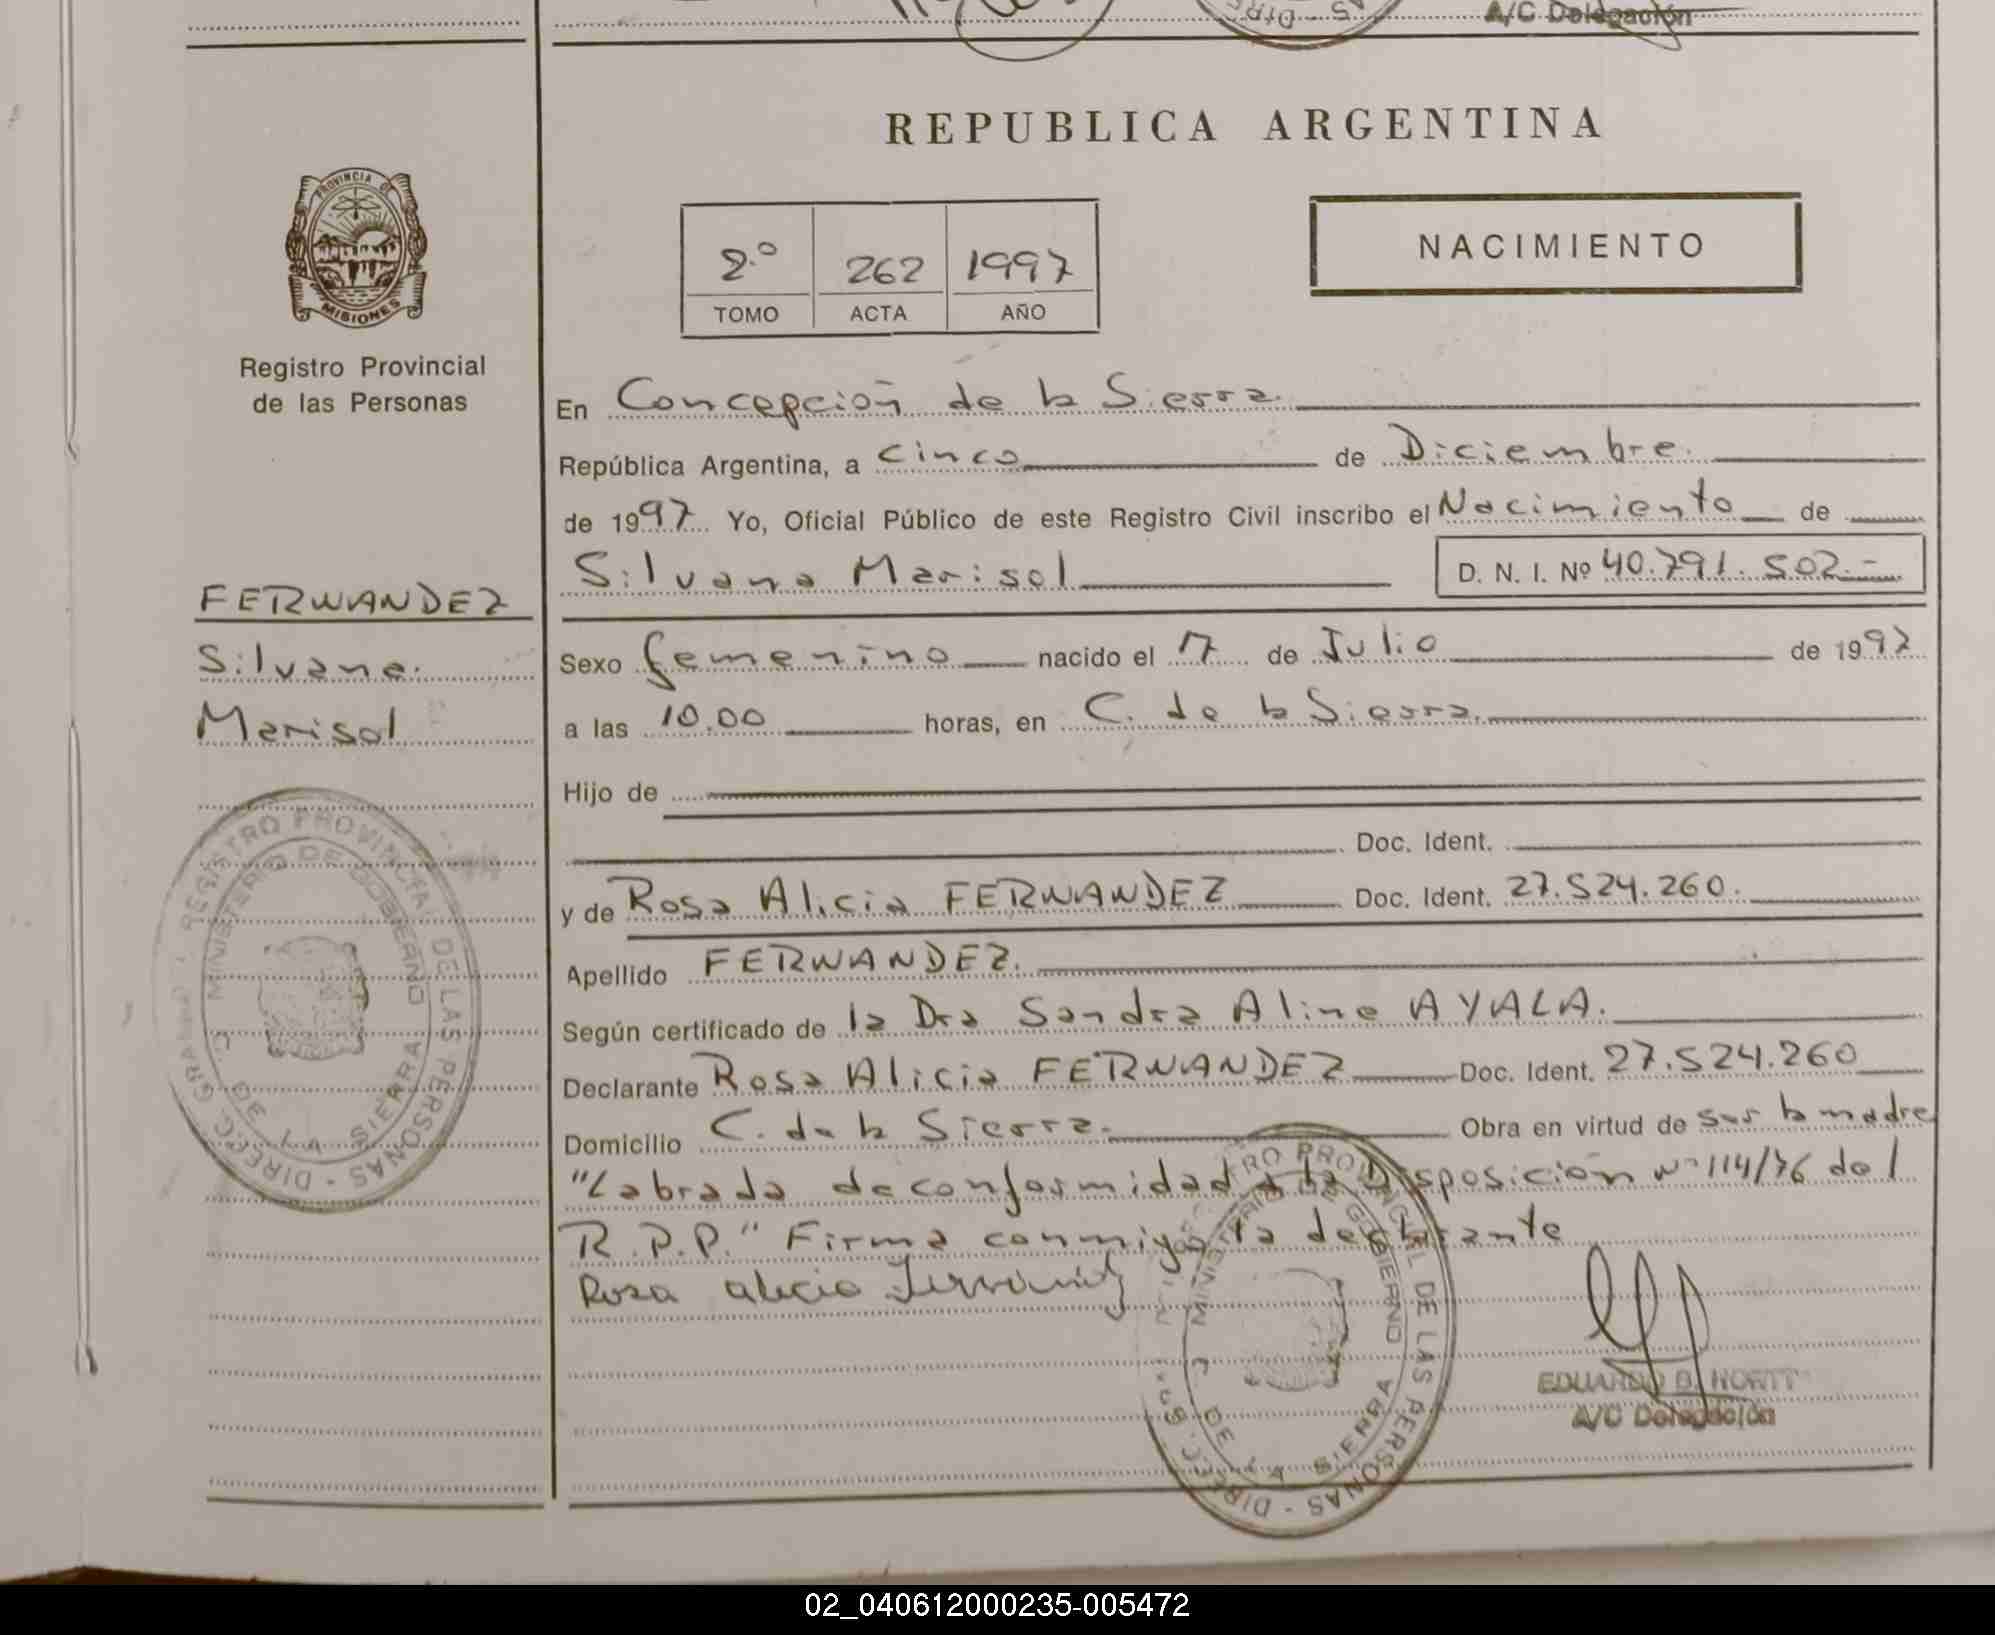 A/C Delegación
REPUBLICA ARGENTINA
PROVINCIA DE
MISIONES
Registro Provincial
de las Personas
2.º 262 1997
TOMO ACTA AÑO
NACIMIENTO
En Concepción de la Sierra.
República Argentina, a cinco de Diciembre.
de 1997 Yo, Oficial Público de este Registro Civil inscribo el Nacimiento de
Silvana Marisol D. N. I. Nº 40.791.502.-
FERNANDEZ
Silvana.
Marisol
Sexo femenino nacido el 17 de Julio de 1997
a las 10.00 horas, en C. de la Sierra.
Hijo de
Doc. Ident.
y de Rosa Alicia FERNANDEZ Doc. Ident. 27.524.260.
Apellido FERNANDEZ.
Según certificado de la Dra Sandra Aline AYALA.
Declarante Rosa Alicia FERNANDEZ Doc. Ident. 27.524.260
Domicilio C. de la Sierra. Obra en virtud de ser la madre
"Labrada de conformidad a la Disposición Nº 114/76 del
R.P.P." Firma conmigo la declarante
Rosa alicia Fernandez
REGISTRO PROVINCIAL DE LAS PERSONAS - DIREC. GRAL.
MINISTERIO DE GOBIERNO
C. DE LA SIERRA
REGISTRO PROVINCIAL DE LAS PERSONAS - DIREC. GRAL.
MINISTERIO DE GOBIERNO
C. DE LA SIERRA
EDUARDO B.
A/C Delegación
02_040612000235-005472